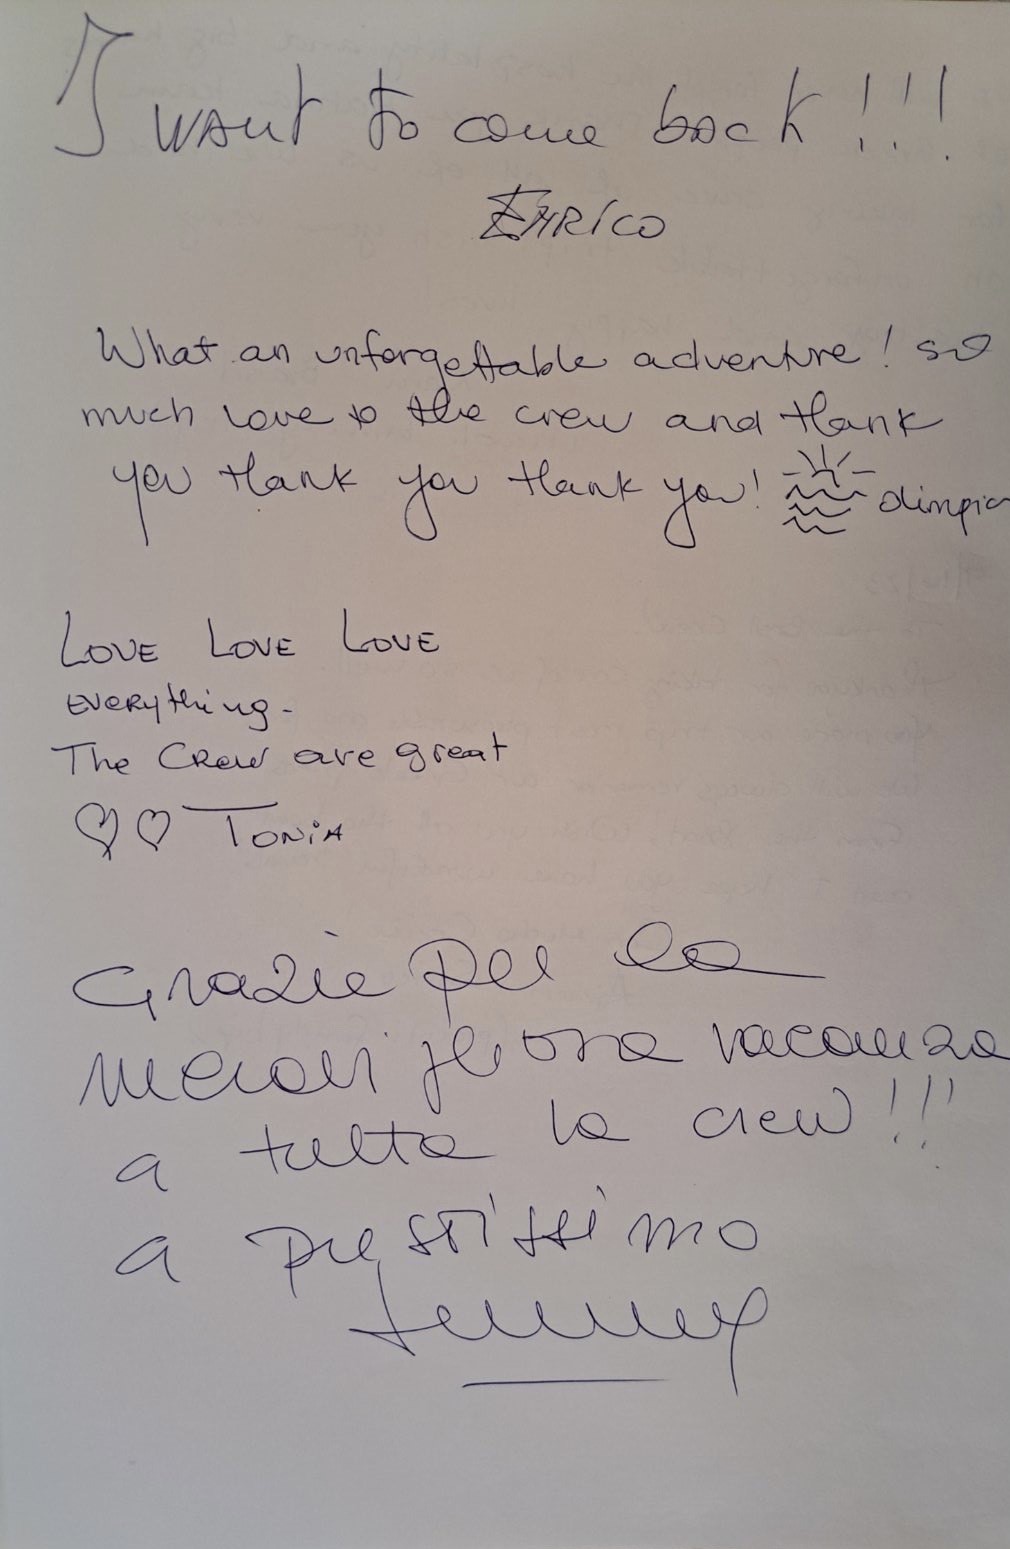 I want to come back !!!
ENRICO
What an unforgettable adventure! so
much love to the crew and thank
you thank you thank you! Olimpia
LOVE LOVE LOVE
everything-
The Crew are great
♡♡ TONIA
Grazie per la
meravigliosa vacanza
a tutta la crew!!!
a prestissimo